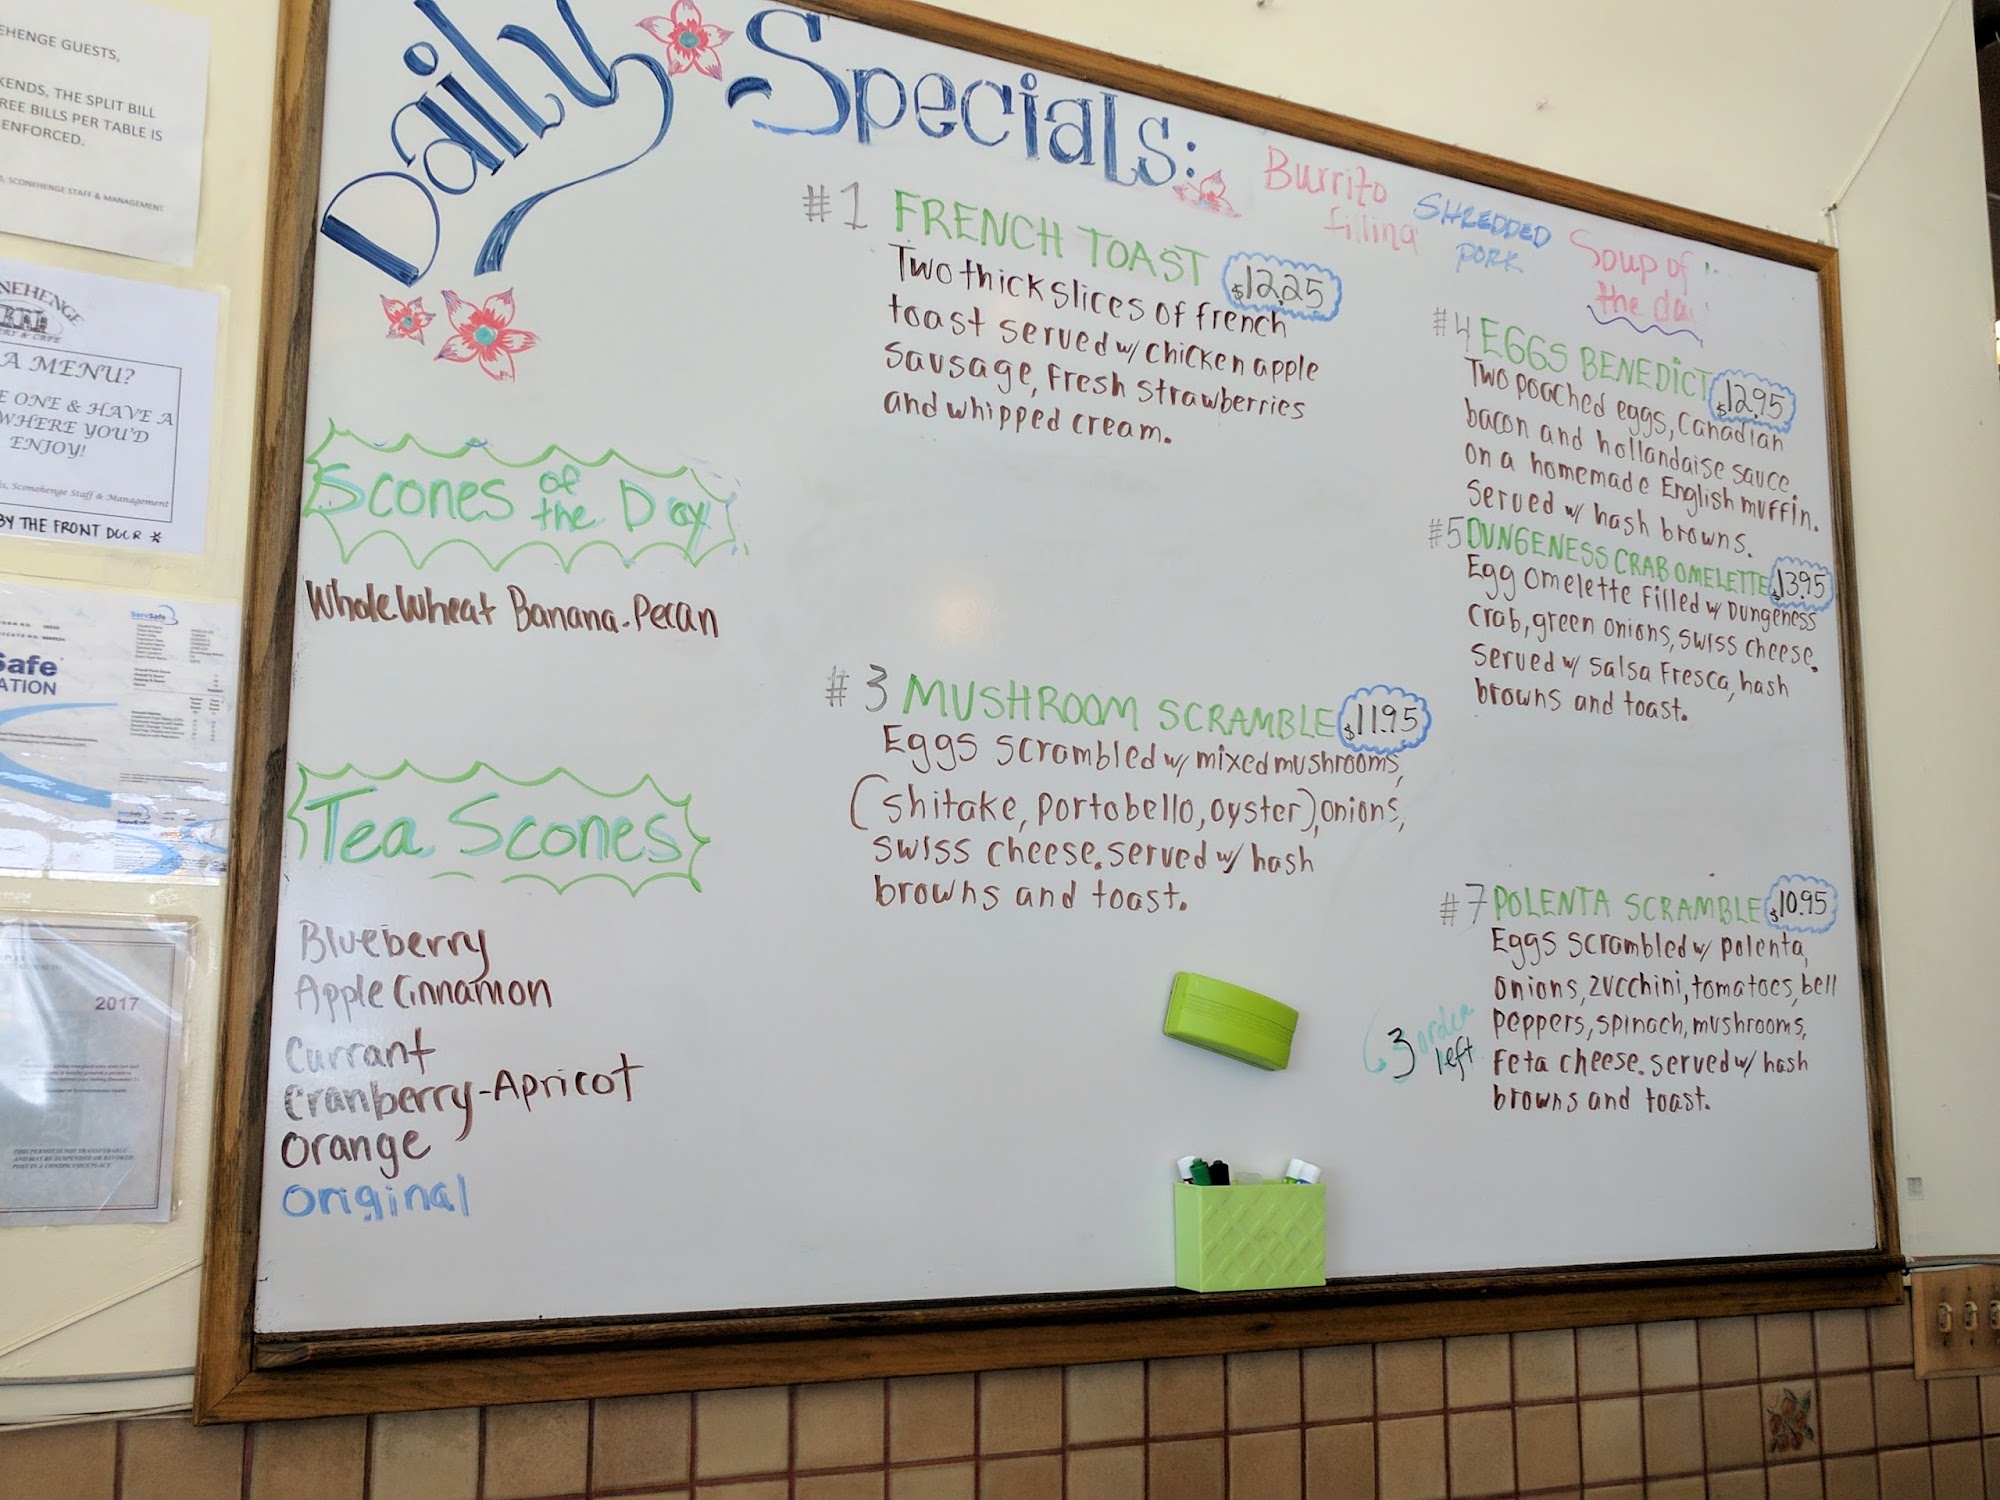 EHENGE GUESTS,
KENDS, THE SPLIT BILL
REE BILLS PER TABLE IS
ENFORCED.
SCONEHENGE STAFF & MANAGEMENT
NEHENGE
& CAFE
A MENU?
E ONE & HAVE A
WHERE YOU'D
ENJOY!
Sconehenge Staff & Management
BY THE FRONT DOOR *
ServSafe
Safe
ATION
2017
THIS PERMIT IS NOT TRANSFERABLE
AND MAY BE SUSPENDED OR REVOKED
POST IN A CONSPICUOUS PLACE
Daily Specials:
Burrito
filling
SHREDDED
PORK
Soup of
the da
Scones of the Day
Whole Wheat Banana-Pecan
Tea Scones
Blueberry
Apple Cinnamon
Currant
Cranberry-Apricot
Orange
Original
#1 FRENCH TOAST $12.25
Two thick slices of french
toast served w/ chicken apple
sausage, fresh strawberries
and whipped cream.
#3 MUSHROOM SCRAMBLE $11.95
Eggs scrambled w/ mixed mushrooms,
(shitake, portobello, oyster), onions,
swiss cheese. served w/ hash
browns and toast.
#4 EGGS BENEDICT $12.95
Two poached eggs, Canadian
bacon and hollandaise sauce
on a homemade English muffin.
Served w/ hash browns.
#5 DUNGENESS CRAB OMELETTE $13.95
Egg omelette filled w/ Dungeness
crab, green onions, swiss cheese.
Served w/ salsa fresca, hash
browns and toast.
#7 POLENTA SCRAMBLE $10.95
Eggs scrambled w/ polenta,
onions, zucchini, tomatoes, bell
peppers, spinach, mushrooms,
feta cheese. served w/ hash
browns and toast.
3 order
left